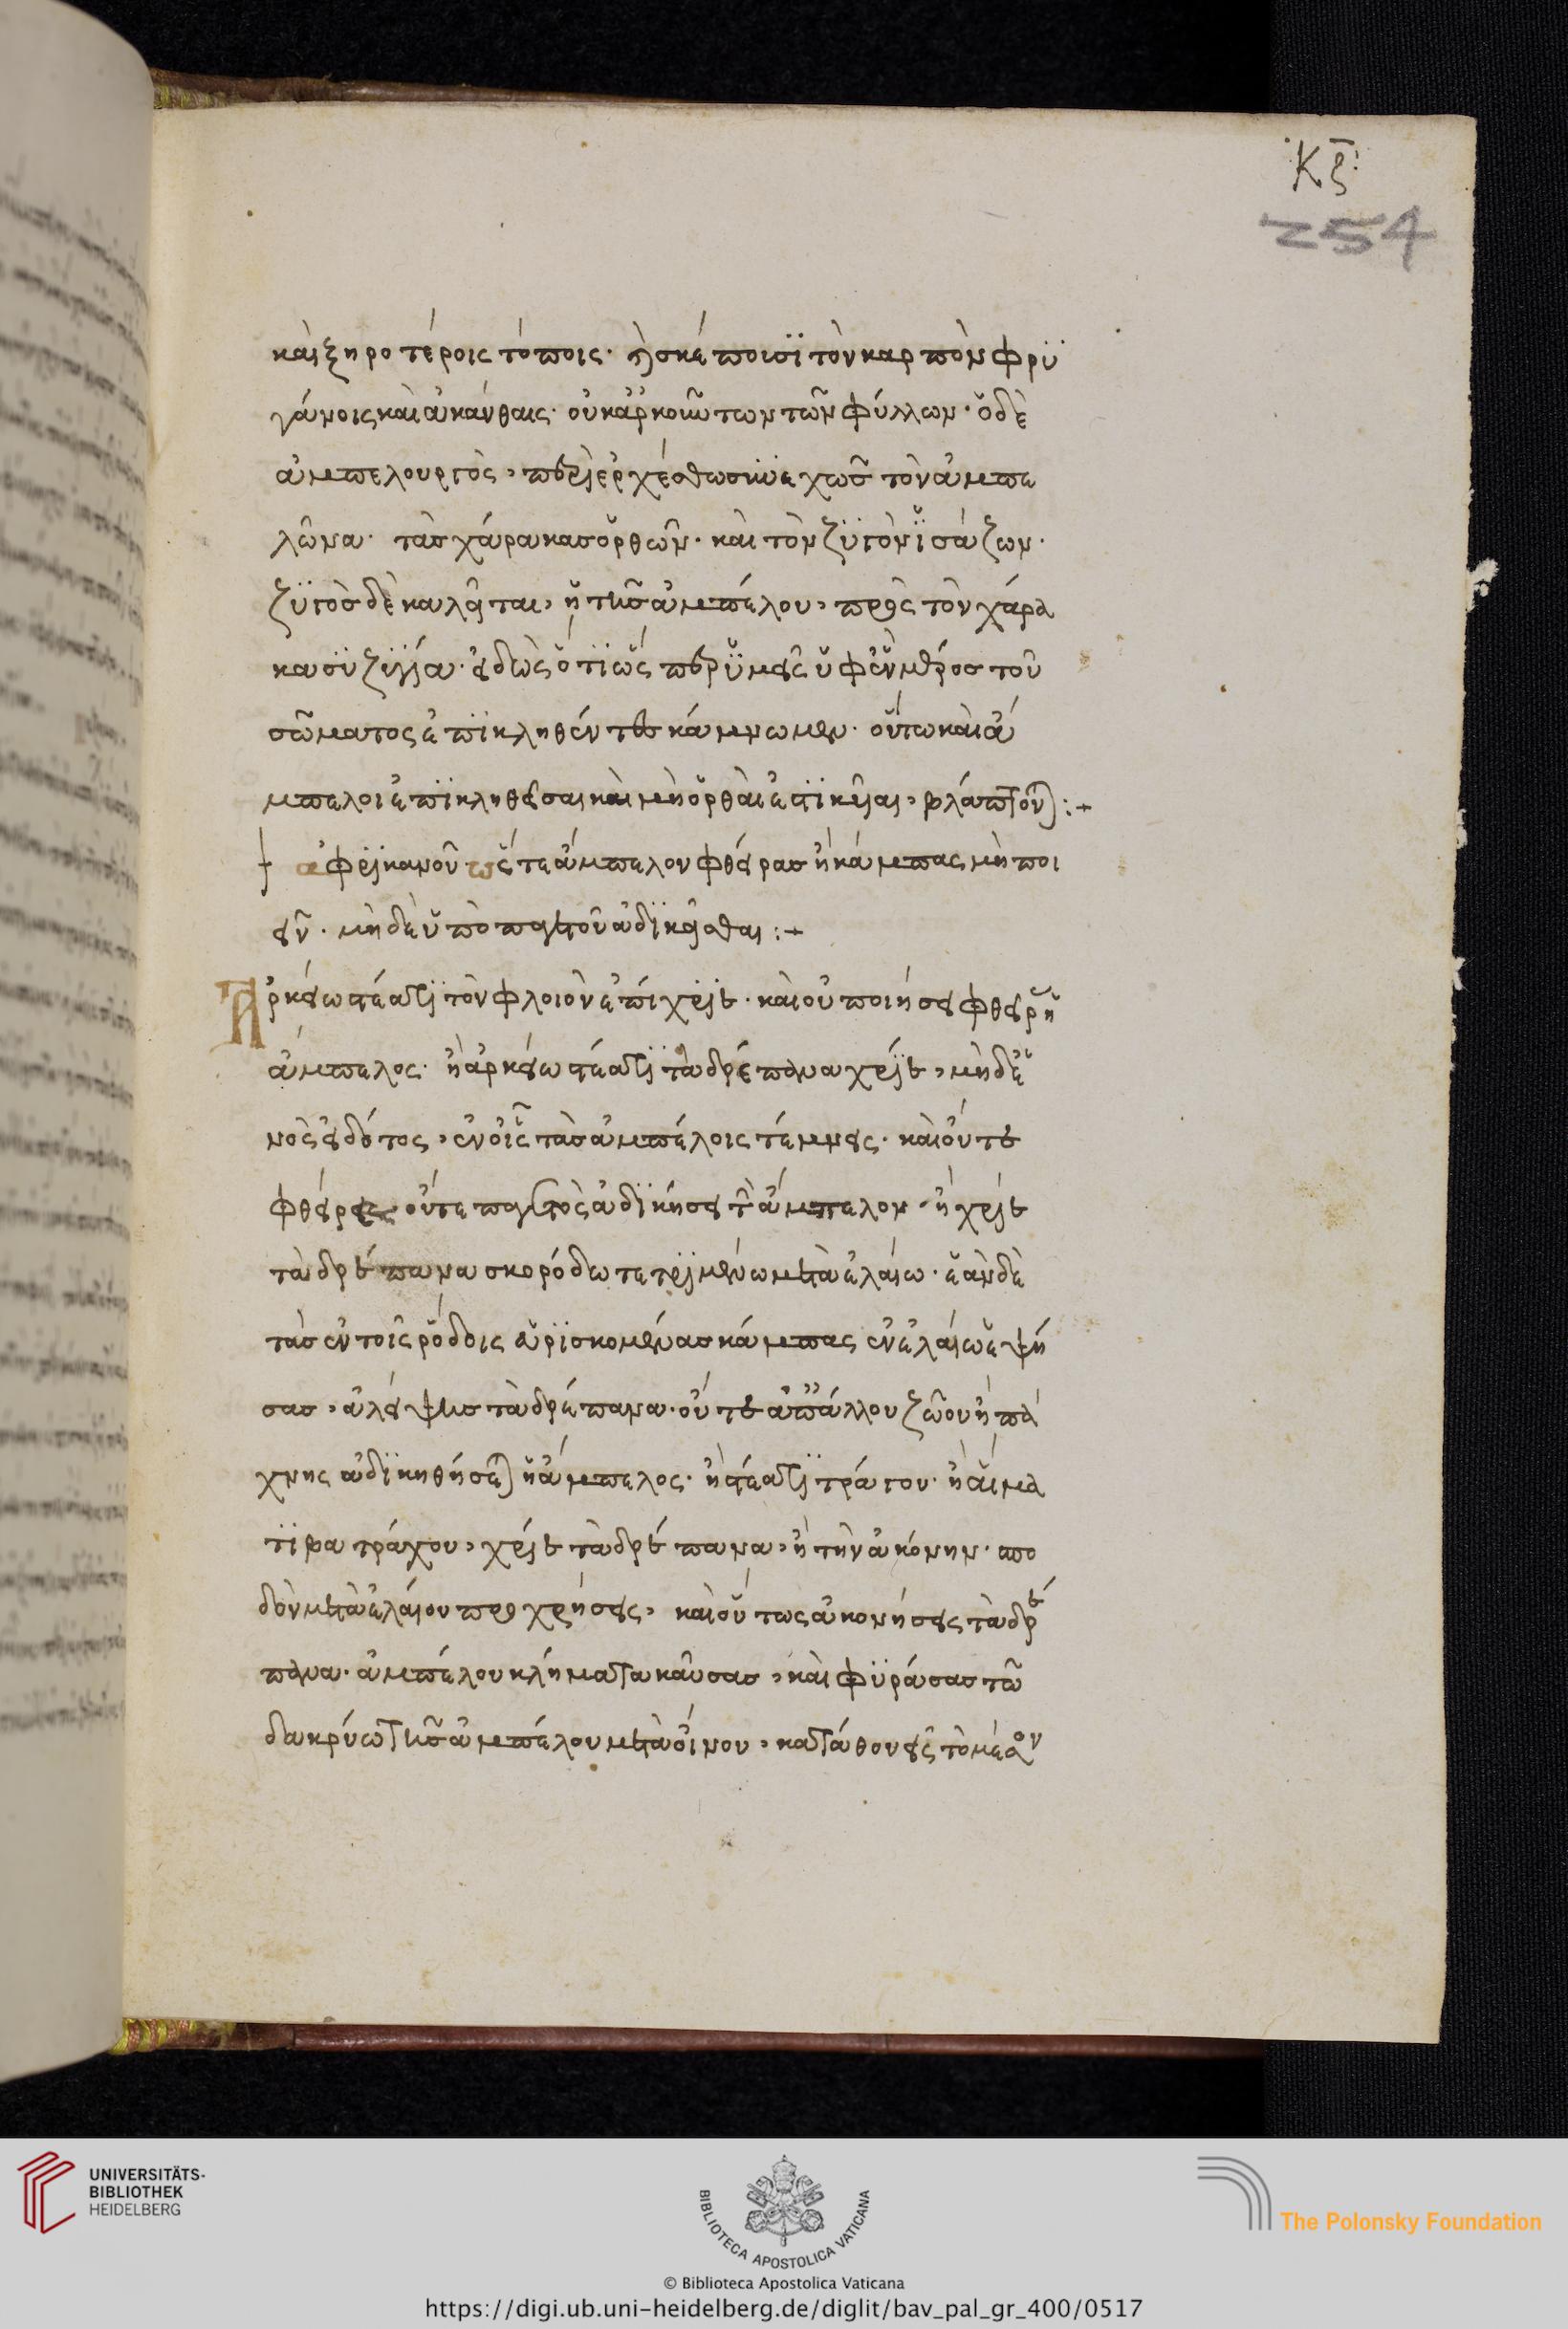 Κϛ:
254
καὶ ξηροτέροις τόποις. ἢ σκέποισι τὸν καρπὸν φρυ
γάνοις καὶ ἀκάνθαις. οὐκ ἀρκούντων τῶν φύλλων. ὁ δὲ
ἀμπελουργὸς, περιερχέσθω συνεχῶς τὸν ἀμπε
λῶνα. τὰς χάρακας ὀρθῶν. καὶ τὸν ζυγὸν ἰσάζων.
ζυγὸς δὲ καλεῖται, ἡ τῆς ἀμπέλου, πρὸς τὸν χάρα
κα συζυγία. εἰδὼς ὅτι ὥσπερ ἡμεῖς ὑφ' ἓν μέρος τοῦ
σώματος ἐπικληθέντες κάμνωμεν. οὕτω καὶ ἄ
μπελοι ἐπικληθεῖσαι καὶ μὴ ὀρθαὶ ἐπικεῖαι, βλάπτονται:+
+ ἀφρικανοῦ ὥστε ἄμπελον φθεῖρας ἢ κάμπας μὴ ποι
εῖν. μηδὲ ὑπὸ παγετοῦ ἀδικεῖσθαι:+
Ἀρκείω στέατι τὸν φλοιὸν ἐπίχριε. καὶ οὐ ποιήσει φθεῖρ ἡ
ἄμπελος. ἢ ἀρκείω στέατι τὰ δρέπανα χρίε, μηδε
νὸς εἰδότος, ἐν οἷς τὰς ἀμπέλοις τέμνεις. καὶ οὔτε
φθείρες οὔτε παγετὸς ἀδικήσει τὴν ἄμπελον. ἢ χρίε
τὰ δρέπανα σκορόδω τετριμένω μετὰ ἐλαίω. ἐὰν δὲ
τὰς ἐν τοῖς ῥόδοις εὑρισκομένας κάμπας ἐν ἐλαίω ἑψή
σας, ἀλείψης τὰ δρέπανα. οὔτε ἀπ' ἄλλου ζώου ἢ πά
χνης ἀδικηθήσεται ἡ ἄμπελος. ἢ στέατι τράγου. ἢ αἵμα
τι βατράχου, χρίε τὰ δρέπανα, ἢ τὴν ἀκόνην. σπο
δὸν μετὰ ἐλαίου προχρήσεις, καὶ οὕτως ἀκονήσεις τὰ δρέ
πανα. ἀμπέλου κλήματα καύσας, καὶ φυράσας τῶ
δακρύω τῆς ἀμπέλου μετὰ οἴνου, κατάθου εἰς τὸ μέσον
UNIVERSITÄTS-
BIBLIOTHEK
HEIDELBERG
BIBLIOTECA APOSTOLICA VATICANA
The Polonsky Foundation
© Biblioteca Apostolica Vaticana
https://digi.ub.uni-heidelberg.de/diglit/bav_pal_gr_400/0517